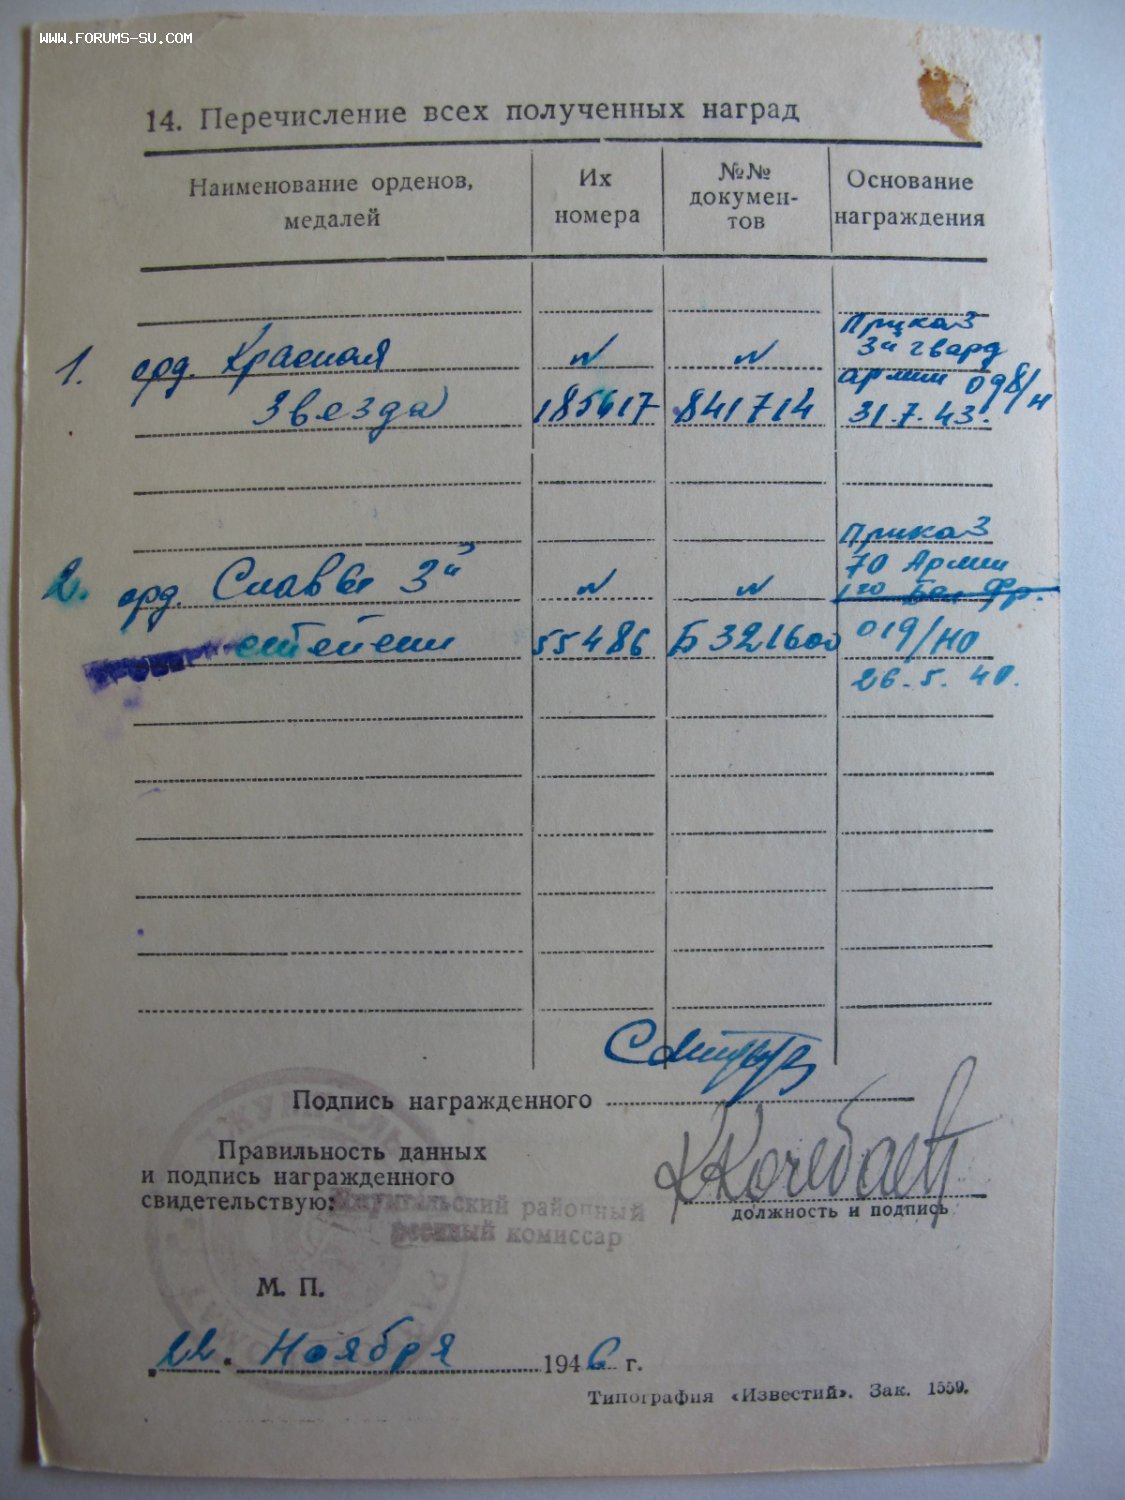 WWW.FORUMS-SU.COM
14. Перечисление всех полученных наград
Наименование орденов, медалей
Их номера
№№ докумен-тов
Основание награждения
Приказ
3й гвард
1. орд. Красная № № армии 098/н
Звезда 185617 841714 31.7.43.
Приказ
70 Армии
2. орд. Славы 3й № № 1го Бел Фр.
степени 55486 Б321600 019/но
26.5.40.
Подпись награжденного
Правильность данных
и подпись награжденного
свидетельствую:
Джунгальский районный
военный комиссар
должность и подпись
М. П.
22. Ноября 1946 г.
Типография «Известий». Зак. 1559.